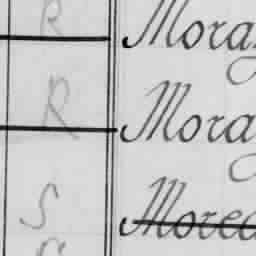 R Mora
R Mora
S Morea
S